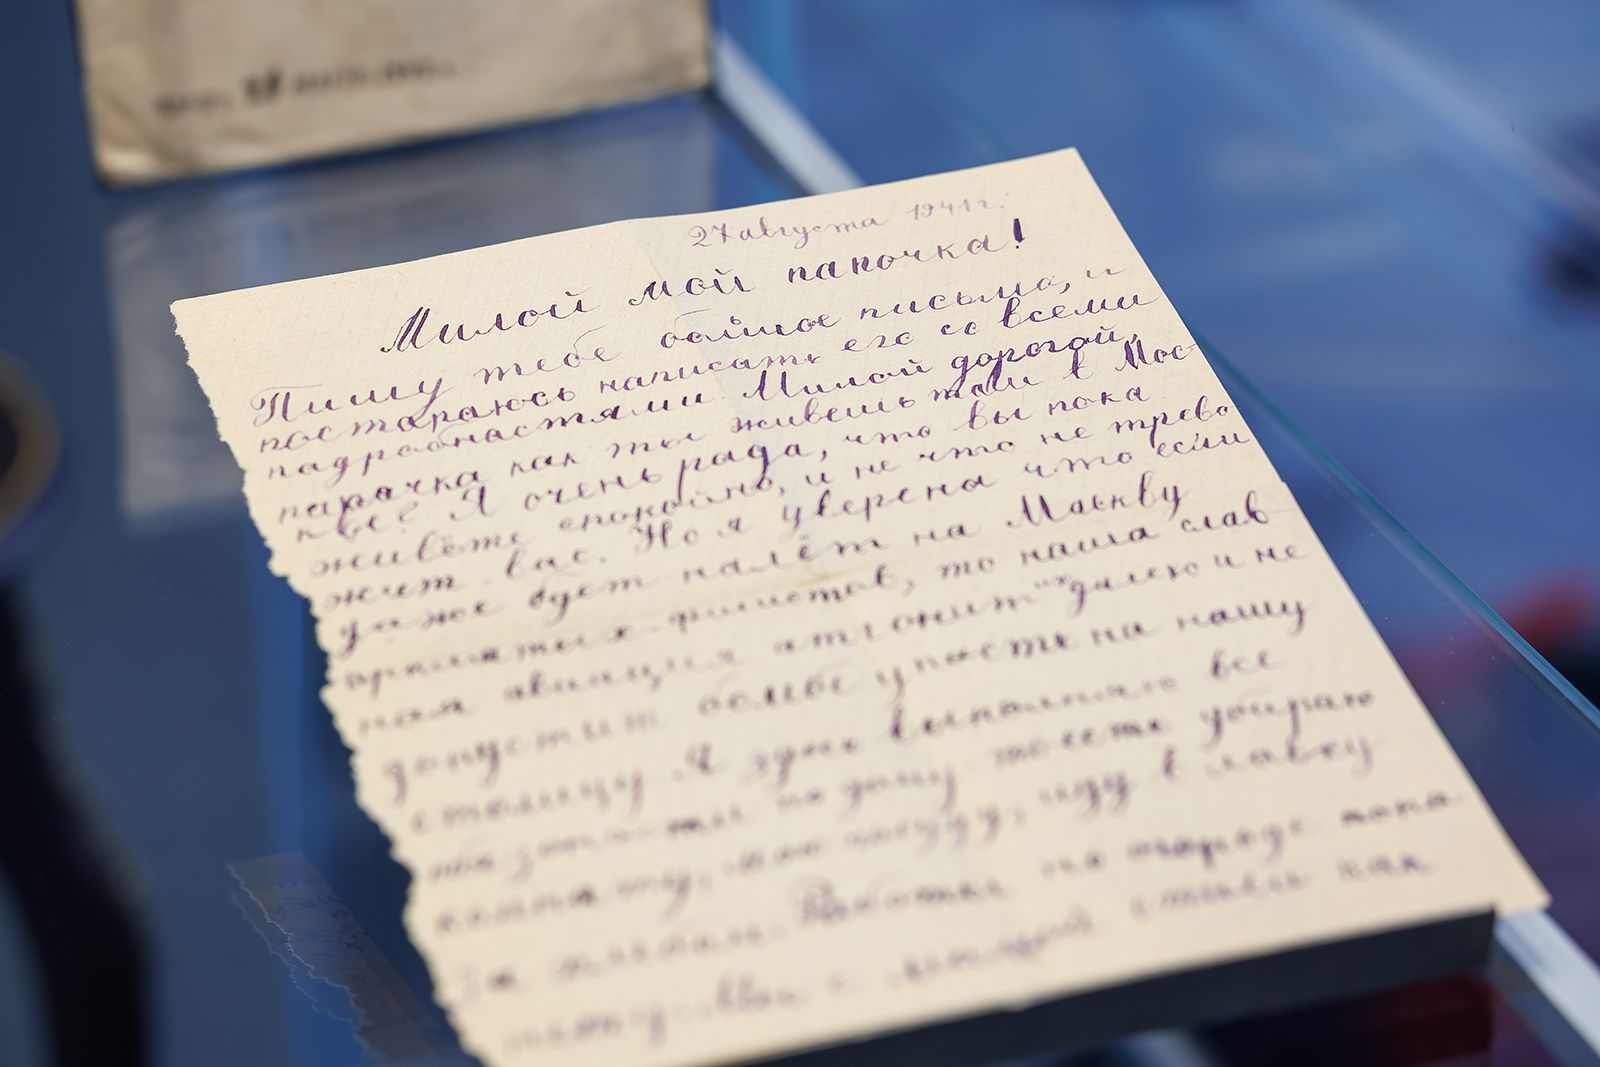 27 августа 1941 г.
Милой мой папочка!
Пишу тебе большое письмо, и
постараюсь написать его со всеми
падробнастями. Милой дорогой,
папачка как ты живешь там в Мос-
квы? Я очень рада, что вы пока
живёте спокойно, и не что не трево-
жит вас. Но я уверена что если
даже будет налёт на Маскву
праклятых-фашистов, то наша слав-
ная авиация атгонит их далеко и не
допустит бомбы упасть на нашу
столицу. Я здесь выполняю все
абезаности по дому тоесть убираю
комнату, мою посуду, иду в лавку
за хлебом. Работы на огороде пока
нету. Мы с